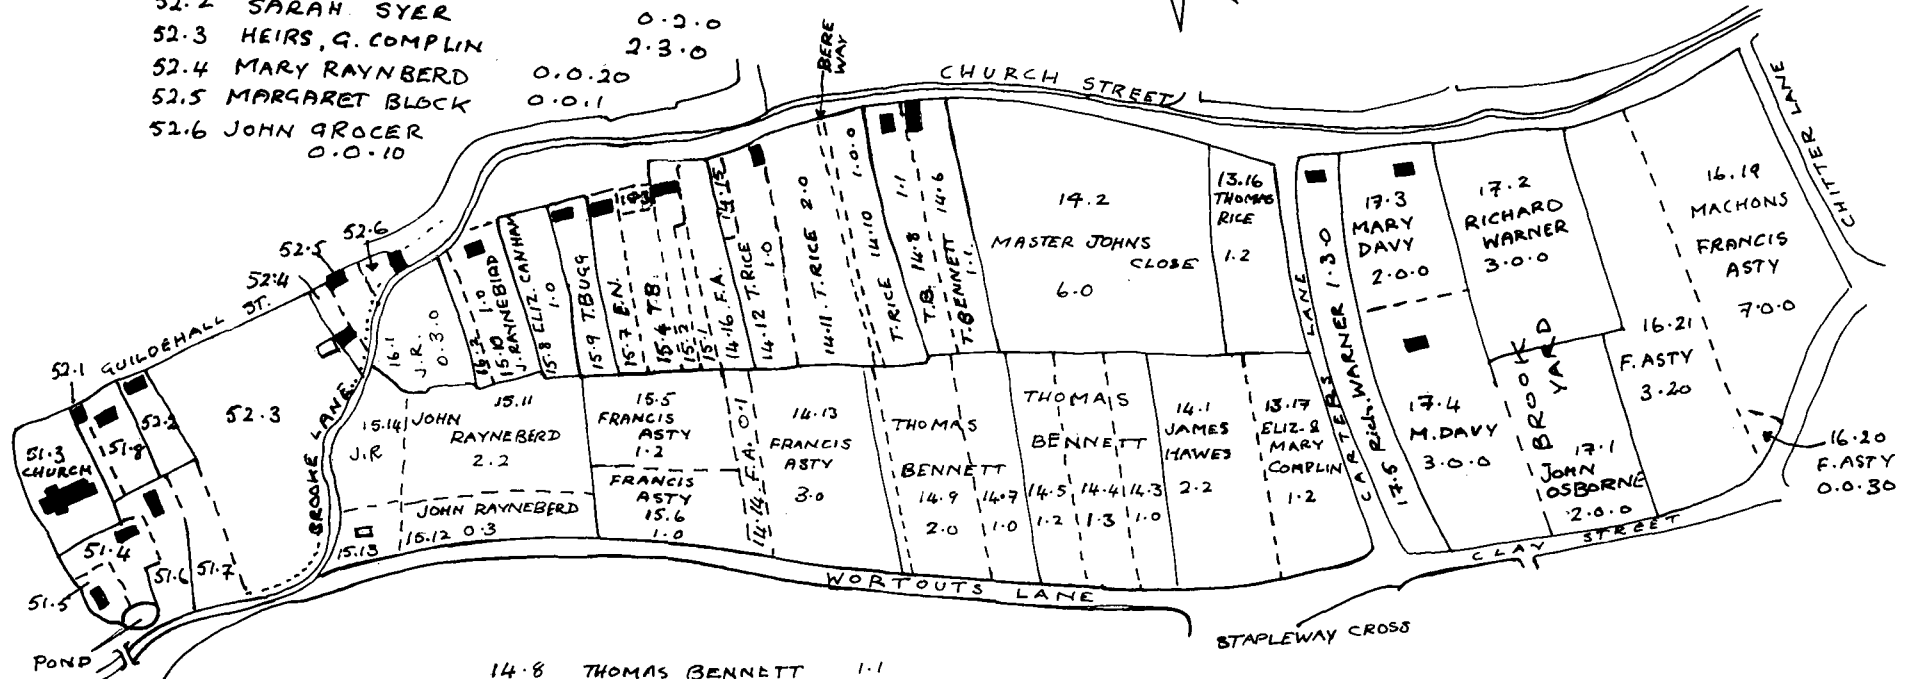 52.2 SARAH SYER 0.2.0
52.3 HEIRS, G. COMPLIN 2.3.0
52.4 MARY RAYNBERD 0.0.20
52.5 MARGARET BLOCK 0.0.1
52.6 JOHN GROCER
0.0.10
BERE
WAY
CHURCH STREET
CHITTER LANE
GUILDEHALL ST.
BROOKE LANE
52.6
52.5
52.4
52.1
52.2
52.3
51.8
51.3
CHURCH
51.4
51.5
51.6
51.7
POND
16.1
J.R.
0.3.0
1.0
15.10
J. RAYNEBIRD
15.8 ELIZ. CANHAM
1.0
15.9 T.BUGG
15.7 E.N.
15.4 T.B.
15.1
14.16 F.A.
14.15
14.12 T.RICE
1.0
14.11. T.RICE 2.0
1.0.0
T.RICE 14.10
T.B. 14.8 1.1
T.BENNETT 14.6
1.1.
14.2
MASTER JOHNS
CLOSE
6.0
13.16
THOMAS
RICE
1.2
CARTERS LANE
17.5 Rich. WARNER 1.3.0
17.3
MARY
DAVY
2.0.0
17.2
RICHARD
WARNER
3.0.0
16.19
MACHONS
FRANCIS
ASTY
7.0.0
16.21
F. ASTY
3.20
16.20
F. ASTY
0.0.30
BROOK
YARD
17.4
M. DAVY
3.0.0
17.1
JOHN
OSBORNE
2.0.0
15.14
J.R
15.13
15.11
JOHN
RAYNEBERD
2.2
JOHN RAYNEBERD
15.12 0.3
15.5
FRANCIS
ASTY
1.2
FRANCIS
ASTY
15.6
1.0
14.14 F.A. 0.1
14.13
FRANCIS
ASTY
3.0
THOMAS
BENNETT
14.9
2.0
14.7
1.0
THOMAS
BENNETT
14.5 14.4 14.3
1.2 1.3 1.0
14.1
JAMES
HAWES
2.2
13.17
ELIZ. &
MARY
COMPLIN
1.2
WORTOUTS LANE
CLAY STREET
STAPLEWAY CROSS
14.8 THOMAS BENNETT 1.1